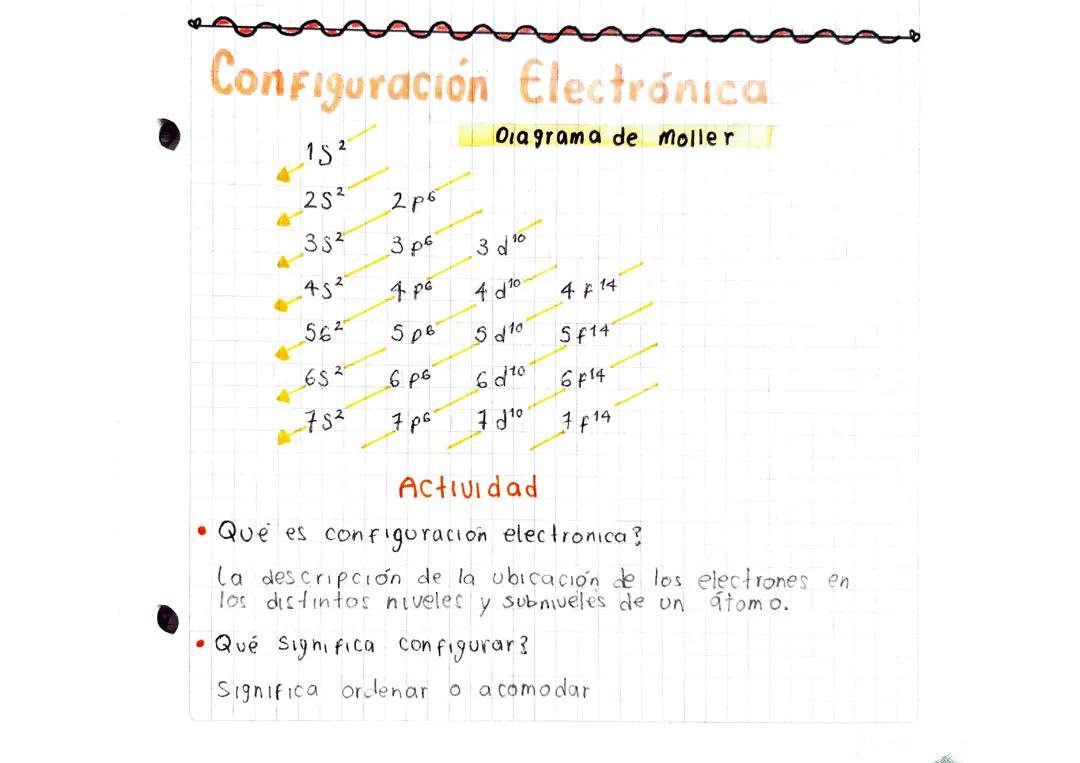 Configuración Electrónica
Diagrama de Moller
1S²
2S² 2p⁶
3S² 3p⁶ 3d¹⁰
4S² 4p⁶ 4d¹⁰ 4f¹⁴
5S² 5p⁶ 5d¹⁰ 5f¹⁴
6S² 6p⁶ 6d¹⁰ 6f¹⁴
7S² 7p⁶ 7d¹⁰ 7f¹⁴
Actividad
• Qué es configuración electronica?
La descripción de la ubicación de los electrones en
los distintos niveles y subniveles de un átomo.
• Qué significa configurar?
Significa ordenar o acomodar